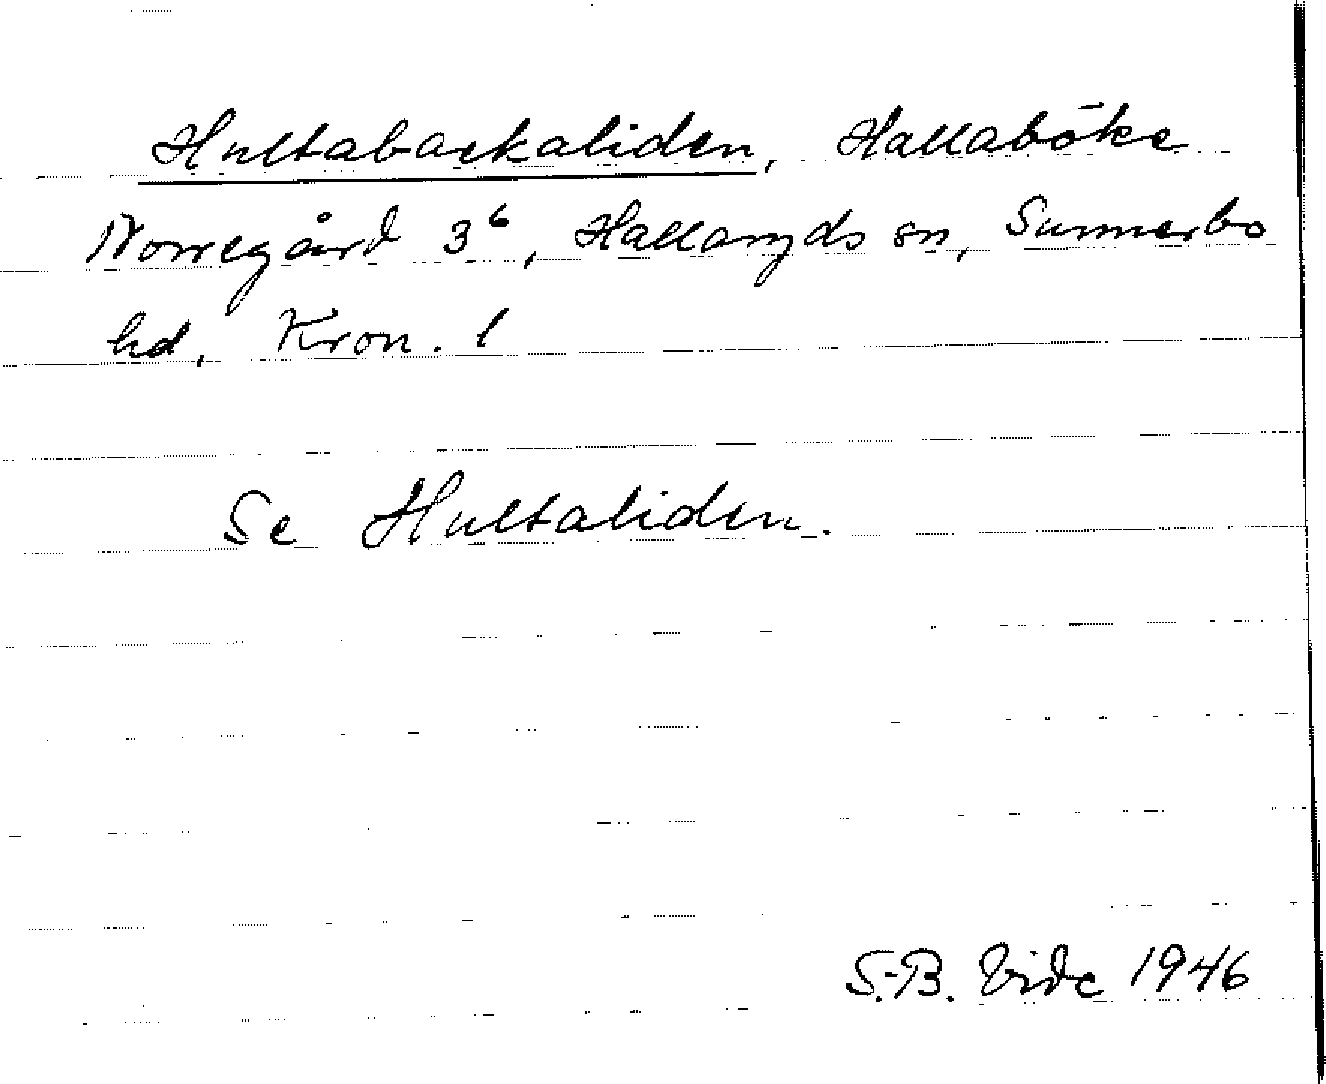 Hultabackaliden, Hallaböke
Norregård 3⁶, Hallaryds sn, Sunnerbo
hd, Kron. l
Se Hultaliden.
S.-B. Vide 1946